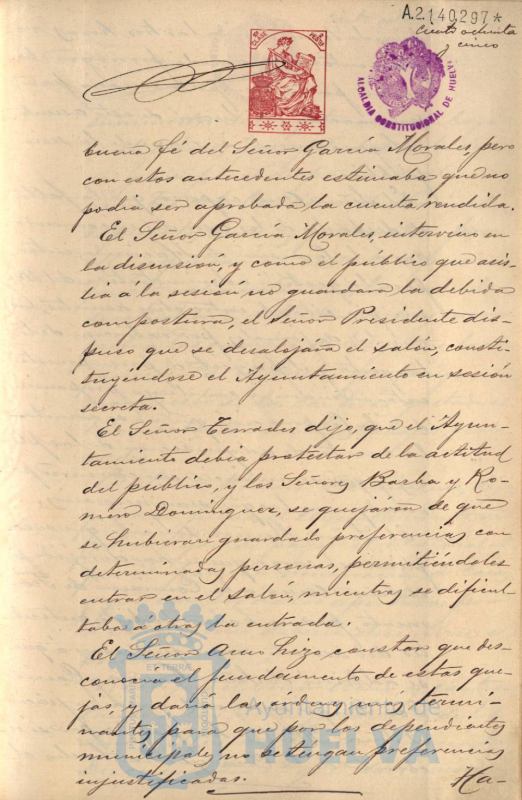 A.2.140.297*
Ciento ochenta
y cinco
ALCALDIA CONSTITUCIONAL DE HUELVA
buena fé del Señor García Morales, pero
con estos antecedentes estimaba que no
podia ser aprobada la cuenta rendida.
El Señor García Morales, intervino en
la discusión, y como el público que asis-
tia á la sesión, no guardara la debida
compostura, el Señor Presidente dis-
puso que se desalojára el salón, consti-
tuyéndose el Ayuntamiento en sesión
secreta.
El Señor Terrades dijo, que el Ayun-
tamiento debia protestar de la actitud
del público, y los Señores Barba y Ro-
mero Dominguez, se quejáron de que
se hubieran guardado preferencias con
determinadas personas, permitiéndoles
entrar en el salón, mientras se dificul-
taba á otras la entrada.
El Señor Amo hizo constar que des-
conocia el fundamento de estas que-
jas, y daría las órdenes más termi-
nantes para que por los dependientes
municipales no se tengan preferencias
injustificadas.
Ha-
Ayuntamiento de
HUELVA